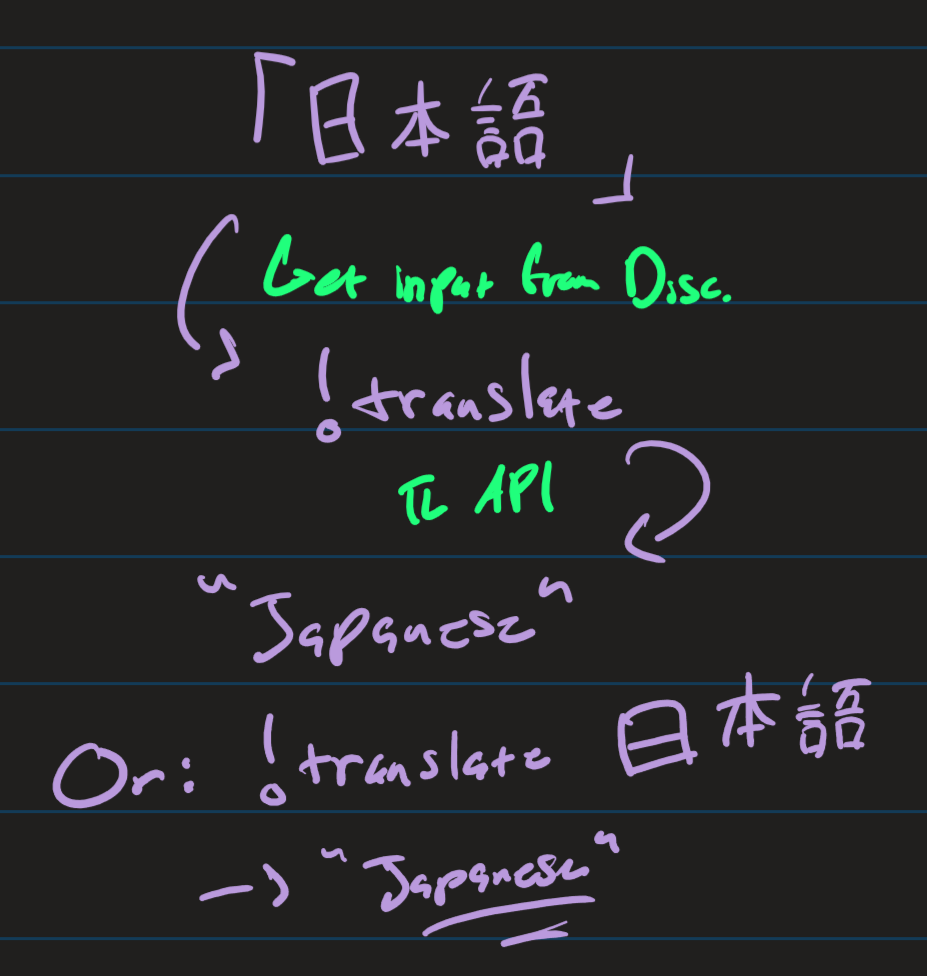 「日本語」
Get input from Disc.
!translate
TL API
"Japanese"
Or: !translate 日本語
→ "Japanese"